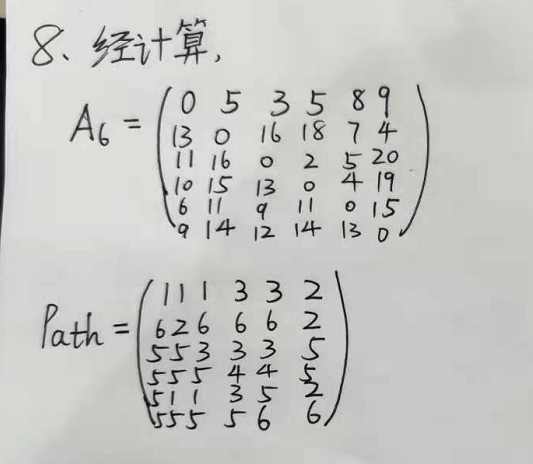 8、经计算,
A6 = 
0 5 3 5 8 9
13 0 16 18 7 4
11 16 0 2 5 20
10 15 13 0 4 19
6 11 9 11 0 15
9 14 12 14 13 0
Path =
1 1 1 3 3 2
6 2 6 6 6 2
5 5 3 3 3 5
5 5 5 4 4 5
5 1 1 3 5 2
5 5 5 5 6 6